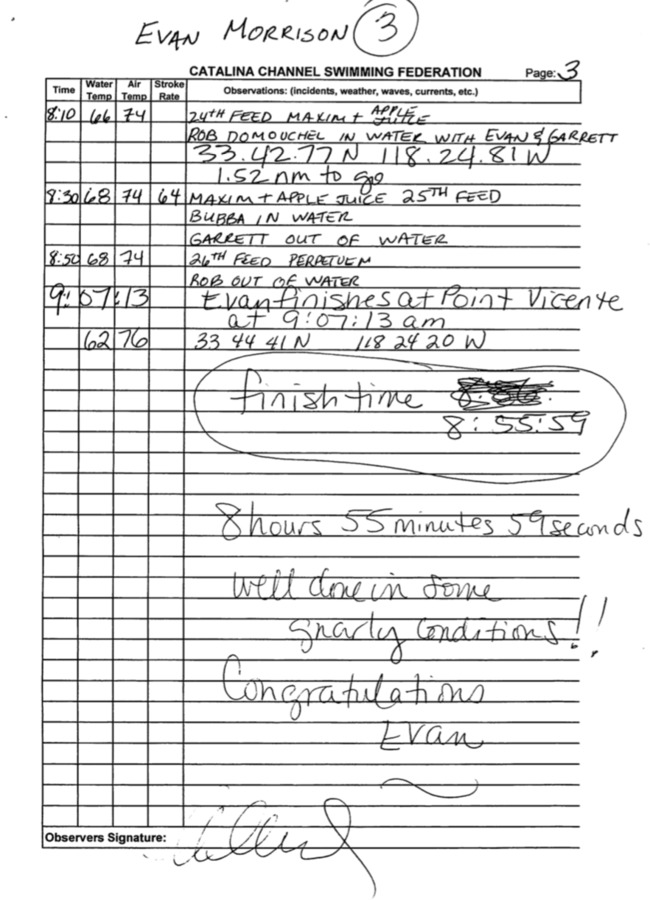 EVAN MORRISON 3
CATALINA CHANNEL SWIMMING FEDERATION Page: 3
Time Water Temp Air Temp Stroke Rate Observations: (incidents, weather, waves, currents, etc.)
8:10 66 74 24TH FEED MAXIM + APPLE
ROB DOMOUCHEL IN WATER WITH EVAN & GARRETT
33.42.77 N 118.24.81 W
1.52 nm to go
8:30 68 74 64 MAXIM + APPLE JUICE 25TH FEED
BUBBA IN WATER
GARRETT OUT OF WATER
8:50 68 74 26TH FEED PERPETUEM
ROB OUT OF WATER
9:07:13 Evan finishes at Point Vicente
at 9:07:13 am
62 76 33 44 41 N 118 24 20 W
finish time
8:55:59
8 hours 55 minutes 59 seconds
well done in some
gnarly conditions!!
Congratulations
Evan
Observers Signature: